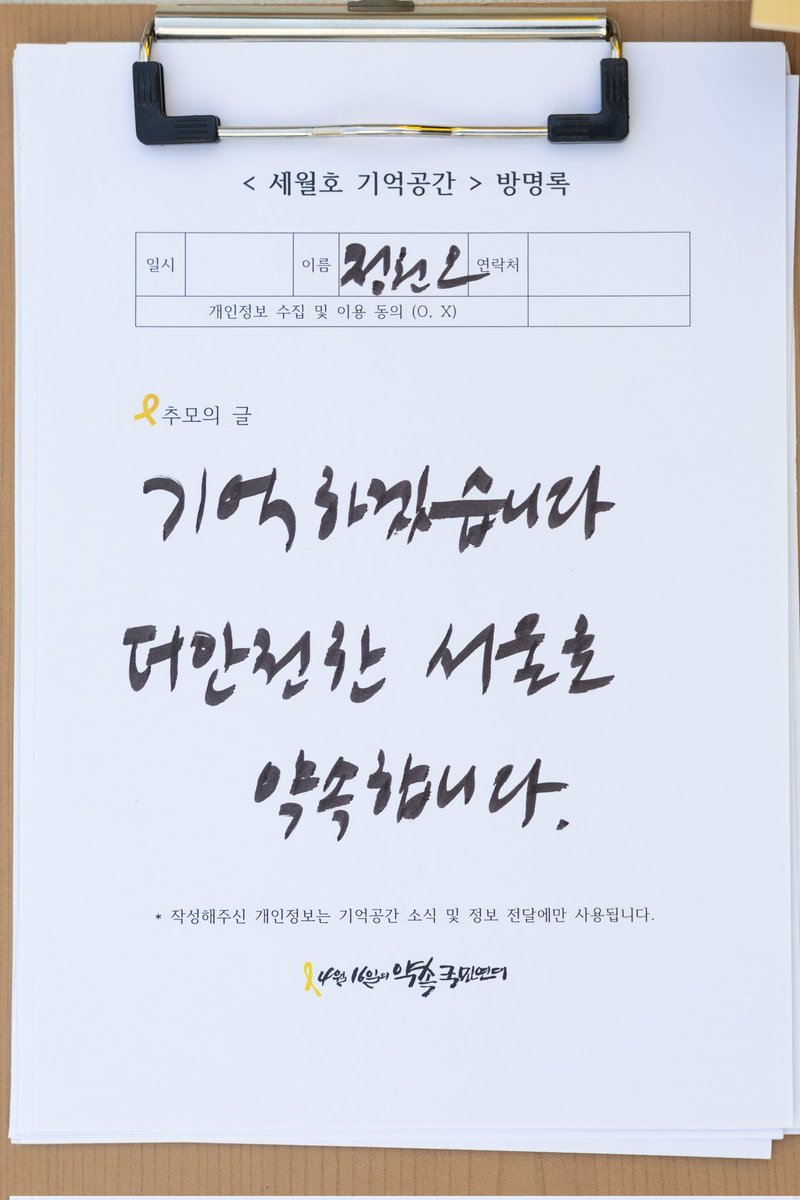 < 세월호 기억공간 > 방명록
일시 이름 정원오 연락처
개인정보 수집 및 이용 동의 (O, X)
추모의 글
기억하겠습니다
더안전한 서울호
약속합니다.
* 작성해주신 개인정보는 기억공간 소식 및 정보 전달에만 사용됩니다.
4월 16일의 약속 국민연대